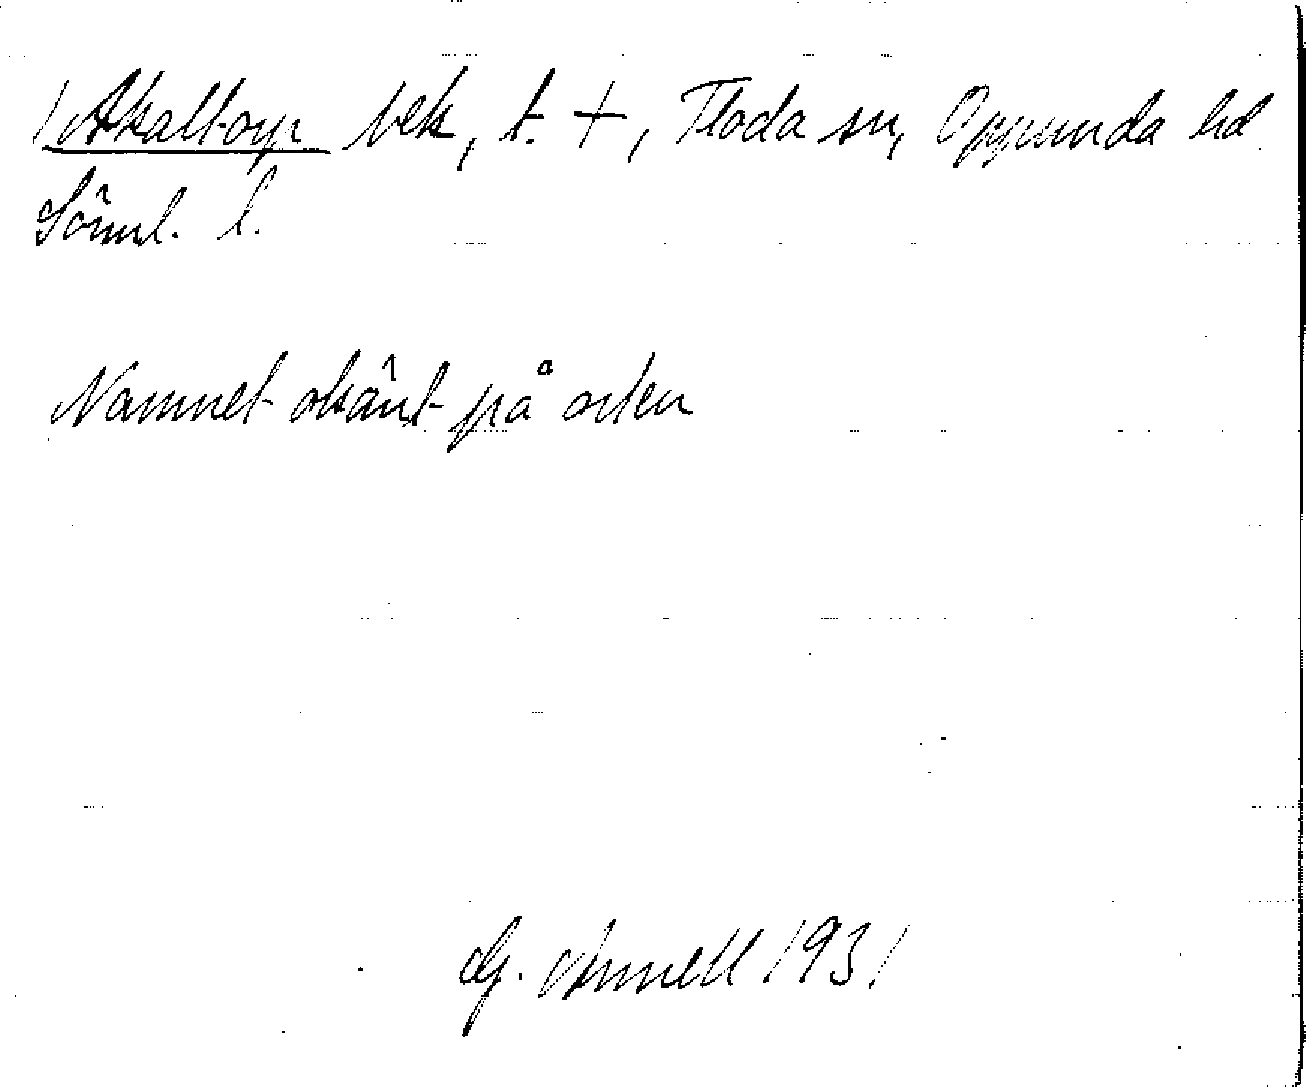 Akalltorp bek, t. +, Floda sn, Oppunda hd
Söml. l.
Namnet okänt på orten
G. Annell 1931